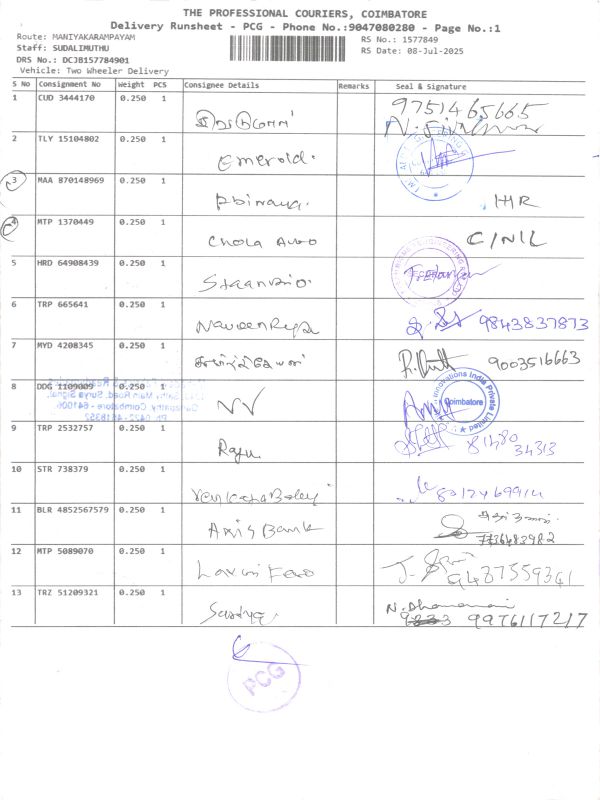 THE PROFESSIONAL COURIERS, COIMBATORE
Delivery Runsheet - PCG - Phone No.:9047080280 - Page No.:1
Route: MANIYAKARAMPAYAM
RS No.: 1577849
Staff: SUDALIMUTHU
RS Date: 08-Jul-2025
DRS No.: DCJB157784901
Vehicle: Two Wheeler Delivery
S No Consignment No Weight PCS Consignee Details Remarks Seal & Signature
1 CUD 3444170 0.250 1 9751465665
2 TLY 15104802 0.250 1 Emerold.
3 MAA 870148969 0.250 1 HR
4 MTP 1370449 0.250 1 Chola Auto C/NIL
5 HRD 64908439 0.250 1
6 TRP 665641 0.250 1 9843837873
7 MYD 4208345 0.250 1 9003516663
8 DDG 1109009 0.250 1 VV
Innovations India Private Limited
Coimbatore
9 TRP 2532757 0.250 1 Raju 81480
34313
10 STR 738379 0.250 1
11 BLR 4852567579 0.250 1 Axis Bank
12 MTP 5089070 0.250 1
13 TRZ 51209321 0.250 1 Sandya 9976117217
PCG